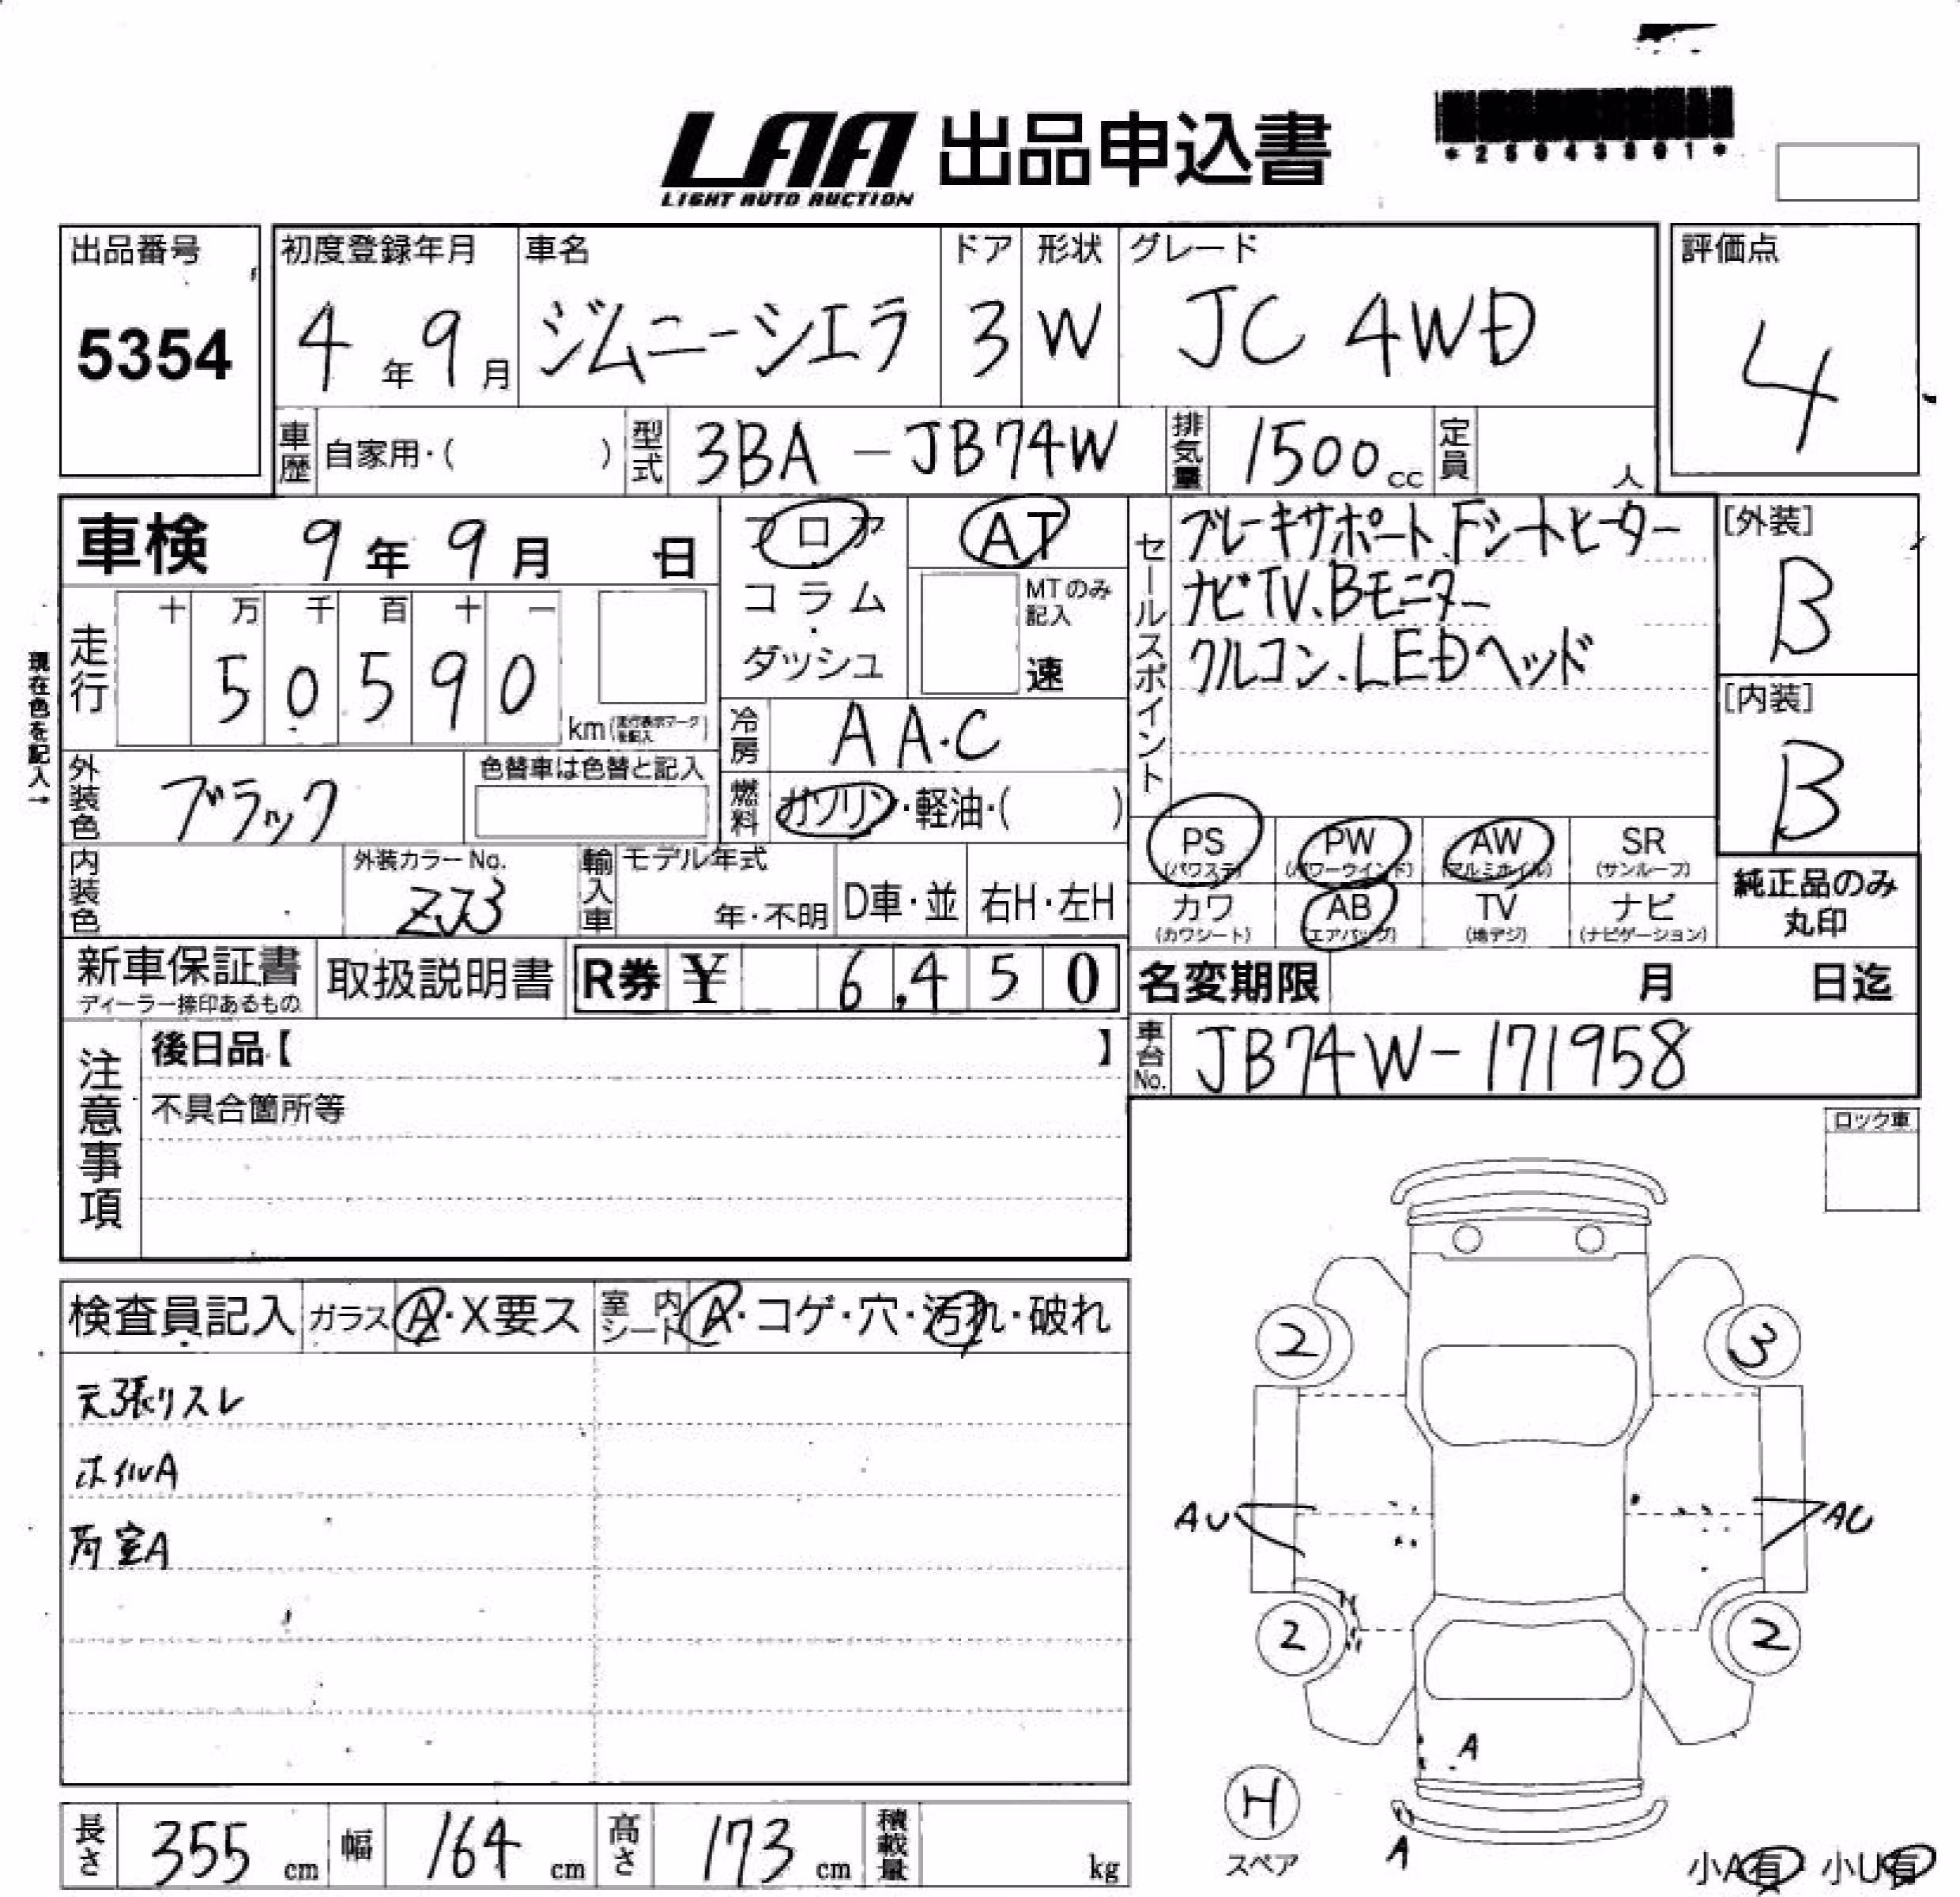 LAA 出品申込書
LIGHT AUTO AUCTION
*25043801*
出品番号
5354
初度登録年月
4年9月
車名
ジムニーシエラ
ドア
3
形状
W
グレード
JC 4WD
評価点
4
車歴 自家用・( )
型式 3BA-JB74W
排気量 1500cc
定員 人
車検 9年9月 日
フロア
コラム
・
ダッシュ
AT
MTのみ
記入
速
セールスポイント
ブレーキサポート、Fシートヒーター
ナビTV、Bモニター
クルコン、LEDヘッド
[外装]
B
[内装]
B
現在色を記入→
走行
十 万 千 百 十 一
5 0 5 9 0
km(走行表示マークを記入)
冷房 AA.C
燃料 ガソリン・軽油・( )
外装色 ブラック
色替車は色替と記入
内装色
外装カラーNo.
ZJ3
輸入車
モデル年式
年・不明
D車・並
右H・左H
PS
(パワステ)
PW
(パワーウインド)
AW
(アルミホイル)
SR
(サンルーフ)
カワ
(カワシート)
AB
(エアバッグ)
TV
(地デジ)
ナビ
(ナビゲーション)
純正品のみ
丸印
新車保証書
ディーラー捺印あるもの
取扱説明書
R券 ¥ 6,450
名変期限 月 日迄
車台No. JB74W-171958
注意事項
後日品【 】
不具合箇所等
ロック車
検査員記入
ガラス A・X要ス
室内シート A・コゲ・穴・汚れ・破れ
天張リスレ
ホイルA
荷室A
2
3
AU
AU
2
2
A
H
スペア
A
小A有 小U有
長さ 355cm
幅 164cm
高さ 173cm
積載量 kg